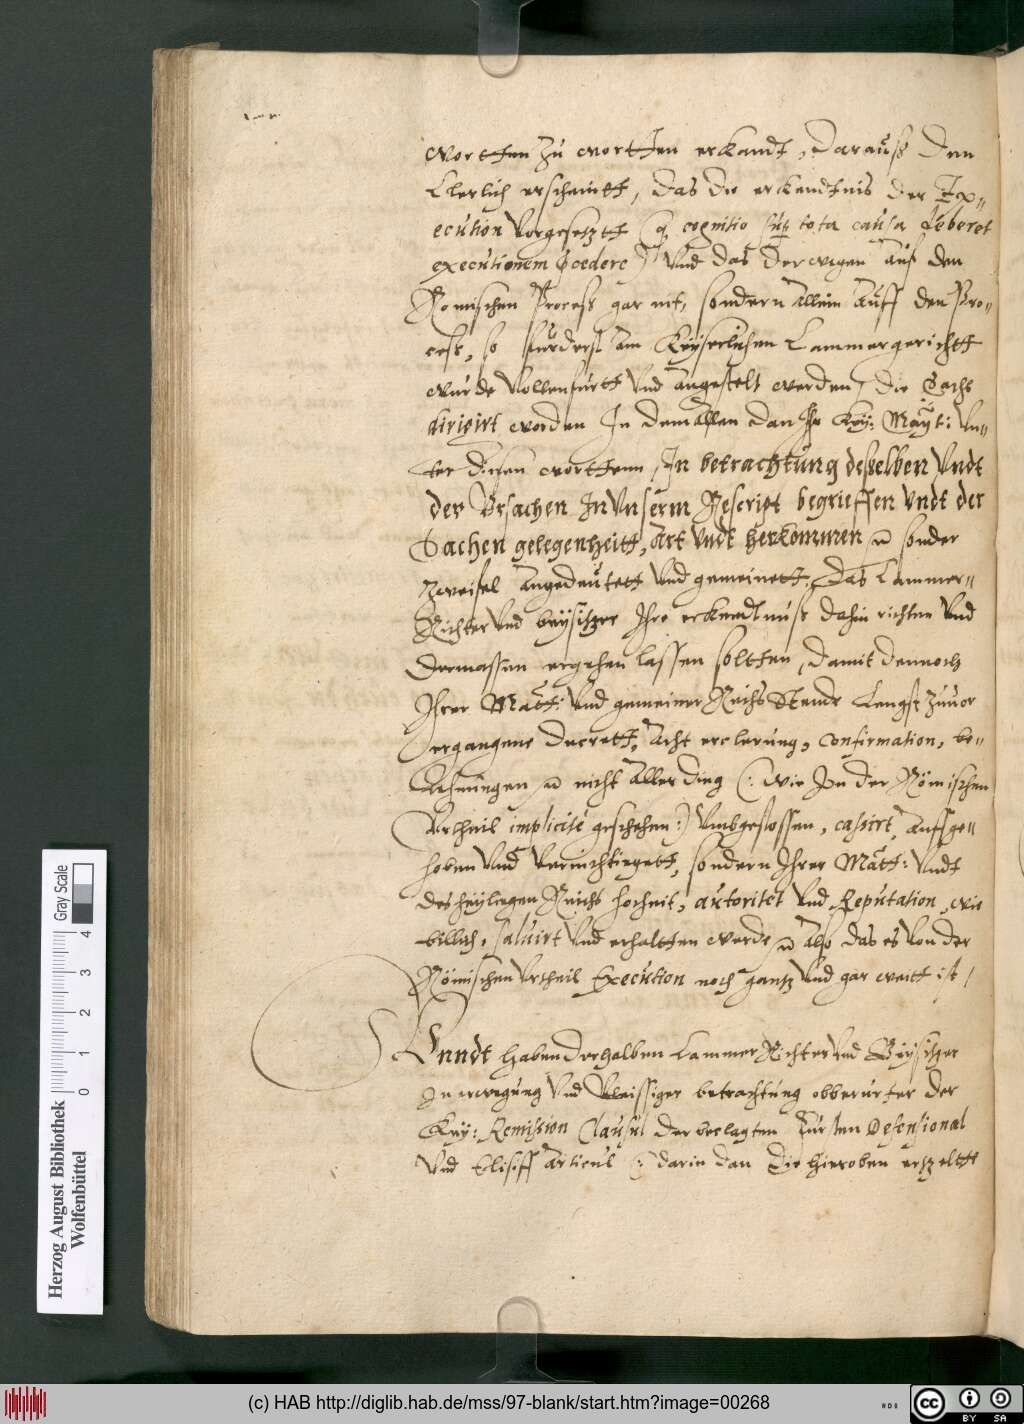 wortten zu wortten erkandt, Darauß den
Clerlich erscheintt, das die erkendtnis der Ex-
ecution vorgesetztt (q cognitio sup tota causa deberet
executionem pcedere) Vnd das derwegen auf den
Romischen Process gar nit, sondern allein auff den Pro-
cess, so furderst am Keyserlichen Cammergerichtt
wurde vollenfurtt vnd angestelt werden, die Sache
dirigirt worden In dem allen dan Ihr Key: Mayt: vn-
ter diesen worttenn, In betrachtung desselben vndt
der Vrsachen In vnserm Rescript begrieffen vndt der
Sachen gelegenheitt, Art vndt herkommen sonder
zweifel angedeutett vnd gemeinett, Das Cammer-
Richter vnd beysitzer Ihre erkendtnuß dahin richten vnd
dermassen ergehen lassen soltten, damit dennoch
Ihrer Matt: vnd gemeiner Reichs Stende Lengst zuuor
ergangene decrett, Acht erclerung, Confirmation, be-
Lehnungen nicht aller ding (: wie In der Römischen
Vrtheil implicite geschehen :) vmbgestossen, cassirt, auffge-
hoben vnd vernichtigett, sondern Ihrer Matt: vndt
des heyligen Reichs hocheit, autoritet vnd Reputation, wie
billich, saluirt vnd erhaltten werde also das es von der
Römischen Vrtheil Execution noch gantz vnd gar weitt ist /
Vnndt haben derhalben Cammer Richter vnd Beysitzer
In erwegung vnd vleissiger betrachtung obberurter der
Key: Remission Clausul der beclagten Fursten Defensional
vnd Elisiff Articul (: darin dan die hieroben erzeltte
Herzog August Bibliothek
Wolfenbüttel
0 1 2 3 4 Gray Scale
(c) HAB http://diglib.hab.de/mss/97-blank/start.htm?image=00268
cc BY SA